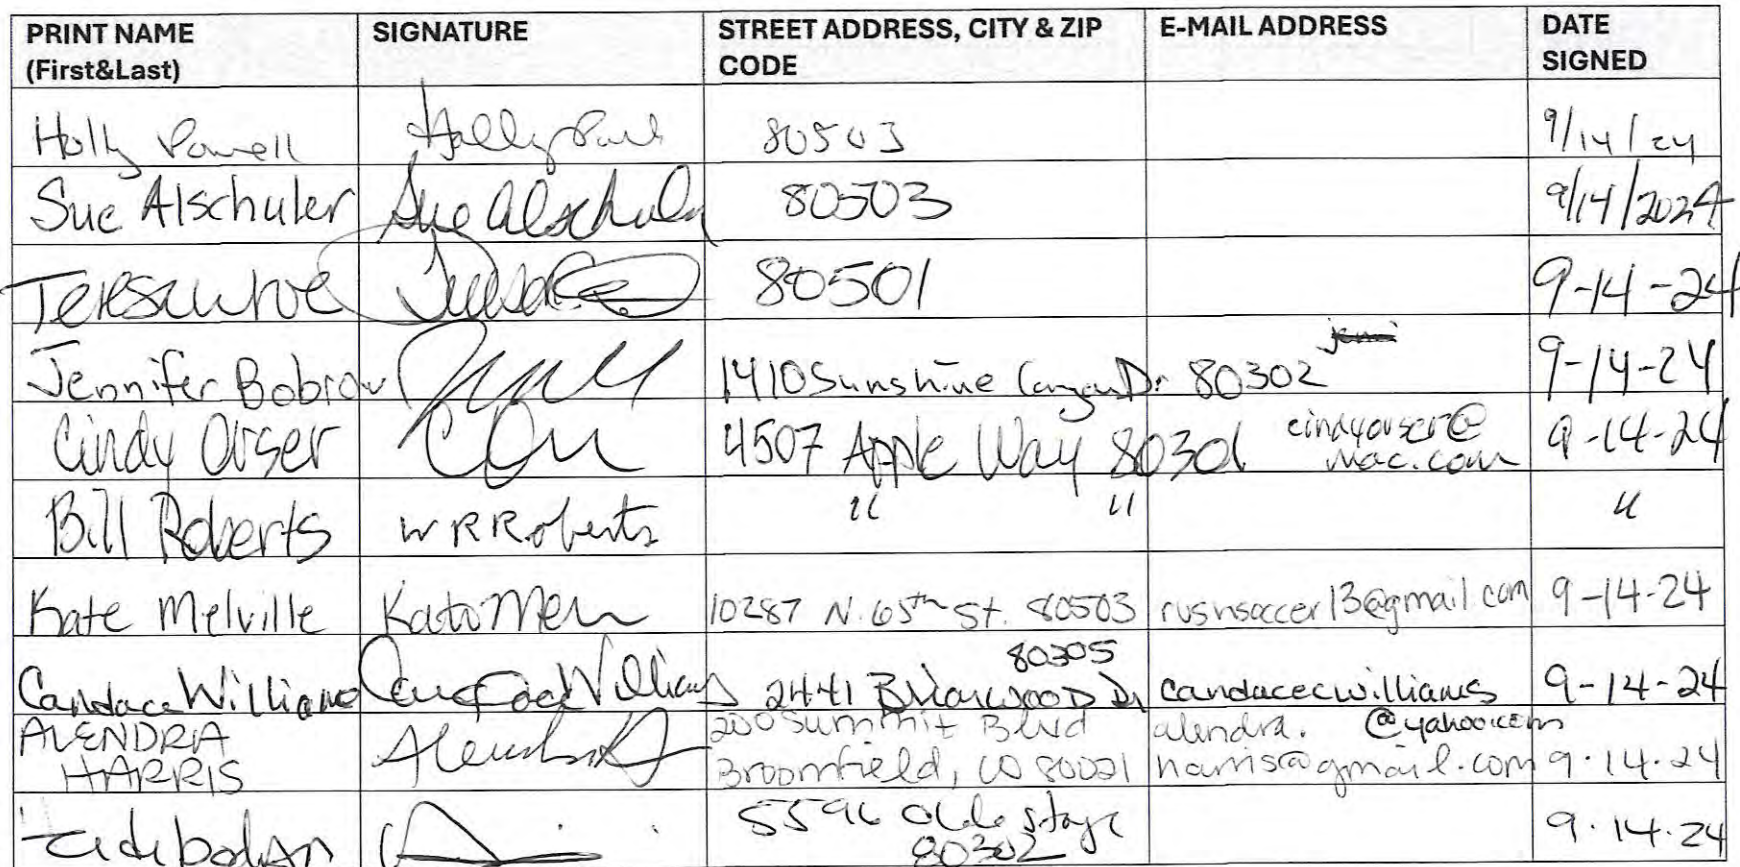 PRINT NAME (First&Last) SIGNATURE STREET ADDRESS, CITY & ZIP CODE E-MAIL ADDRESS DATE SIGNED
Holly Powell 80503 9/14/24
Sue Alschuler Sue Alschuler 80503 9/14/2024
80501 9-14-24
Jennifer Bobrow 1410 Sunshine Canyon Dr 80302 9-14-24
Cindy Orser 4507 Apple Way 80301 cindyorser@mac.com 9-14-24
Bill Roberts W R Roberts " " "
Kate Melville 10287 N. 65th St. 80503 rushsoccer13@gmail.com 9-14-24
Candace Williams Candace Williams 2441 Briarwood Dr 80305 candacecwilliams@yahoo.com 9-14-24
ALENDRA HARRIS 200 Summit Blvd Broomfield, CO 80021 alendra.harris@gmail.com 9.14.24
Stage 80302 9.14.24